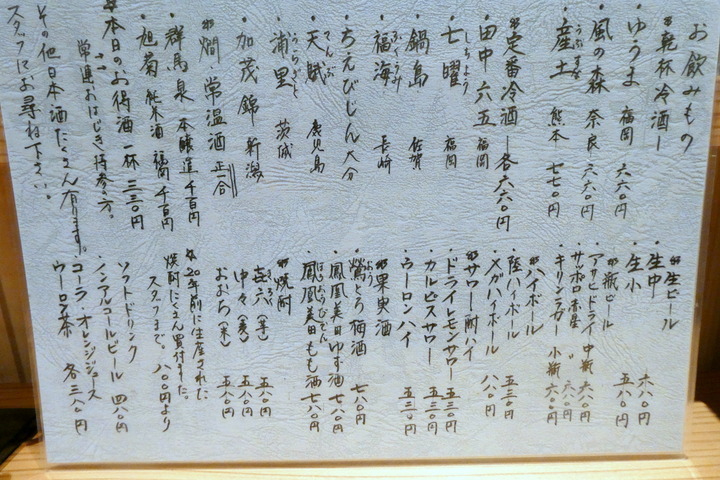 お飲みもの
*乾杯冷酒ー
・ゆうま 福岡 六六〇円
・風の森 奈良 六六〇円
うぶすな
・産土 熊本 七七〇円
*定番冷酒ー各六六〇円
・田中六五 福岡
しちよう
・七曜 福岡
・鍋島 佐賀
ふくうみ
・福海 長崎
・ちえびじん 大分
てんぶ
・天賦 鹿児島
うらざと
・浦里 茨城
・加茂錦 新潟
*燗 常温酒 正一合
・群馬泉 本醸造 千百円
・旭菊 純米酒 福岡 千百円
*本日のお得酒 一杯 三三〇円
常連おはじき持参の方。
その他日本酒たくさん有ります。
スタッフにお尋ね下さい。
*生ビール
・生中 六八〇円
・生小 五八〇円
*瓶ビール
・アサヒドライ 中瓶 六八〇円
・サッポロ赤星 〃 六八〇円
・キリンラガー 小瓶 六〇〇円
*ハイボール
・陸ハイボール 五三〇円
・メガハイボール 八八〇円
*サワー酎ハイ
・ドライレモンサワー 五三〇円
・カルピスサワー 五三〇円
・ウーロンハイ 五三〇円
*果実酒
・鶯とろ梅酒 七八〇円
・鳳凰美田ゆず酒 七八〇円
ほうおうびでん
・鳳凰美田もも酒 七八〇円
*焼酎
・㐂六(芋) 五八〇円
・中々(麦) 五八〇円
・おおち(米) 五八〇円
*20年前に生産された
焼酎たくさん買付ました。
スタッフまで。 八八〇円より
ソフトドリンク
・ノンアルコールビール 四八〇円
・コーラ・オレンジジュース
ウーロン茶 各三八〇円